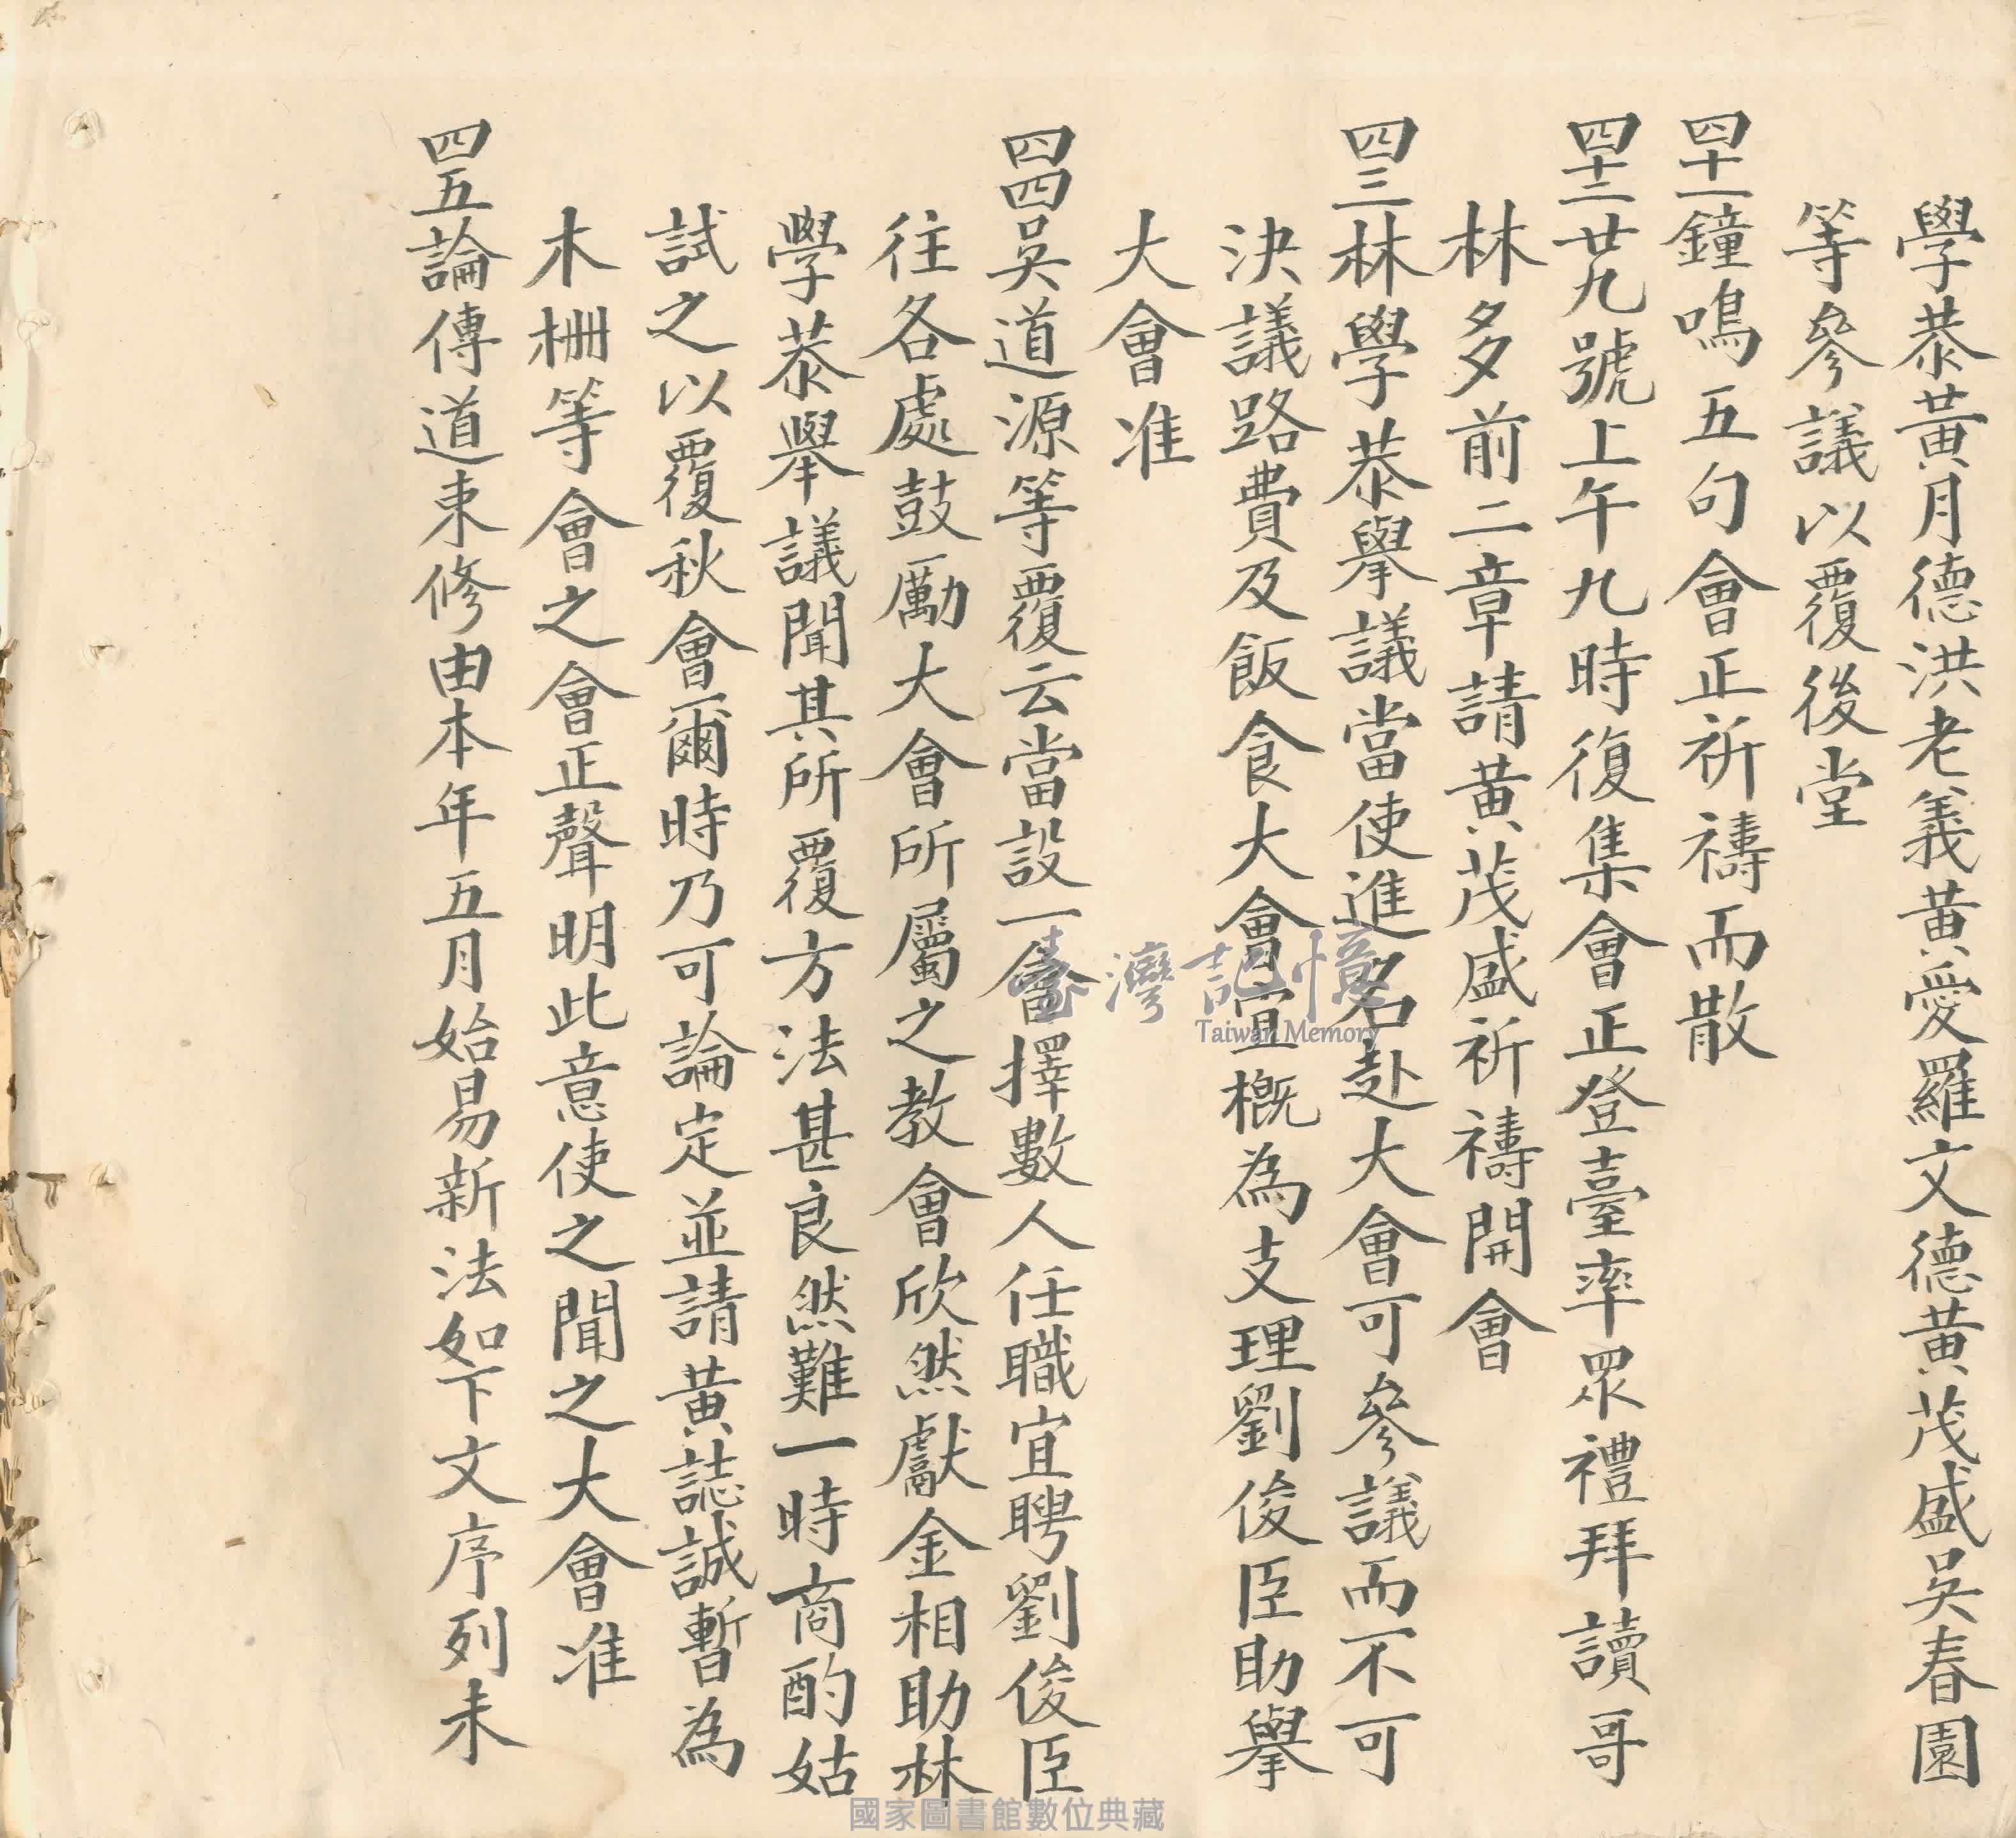 學恭黃月德洪老義黃愛羅文德黃茂盛吳春園
等參議以覆後堂
四十一鐘鳴五句會正祈禱而散
四十二廿九號上午九時復集會正登臺率眾禮拜讀哥
林多前二章請黃茂盛祈禱開會
四三林學恭舉議當使進名赴大會可參議而不可
決議路費及飯食大會宜概為支理劉俊臣助舉
大會准
四四吳道源等覆云當設一會擇數人任職宜聘劉俊臣
往各處鼓勵大會所屬之教會欣然獻金相助林
學恭舉議聞其所覆方法甚良然難一時商酌姑
試之以覆秋會爾時乃可論定並請黃誌誠暫為
木柵等會之會正聲明此意使之聞之大會准
四五論傳道束修由本年五月始易新法如下文序列未
臺灣記憶
Taiwan Memory
國家圖書館數位典藏